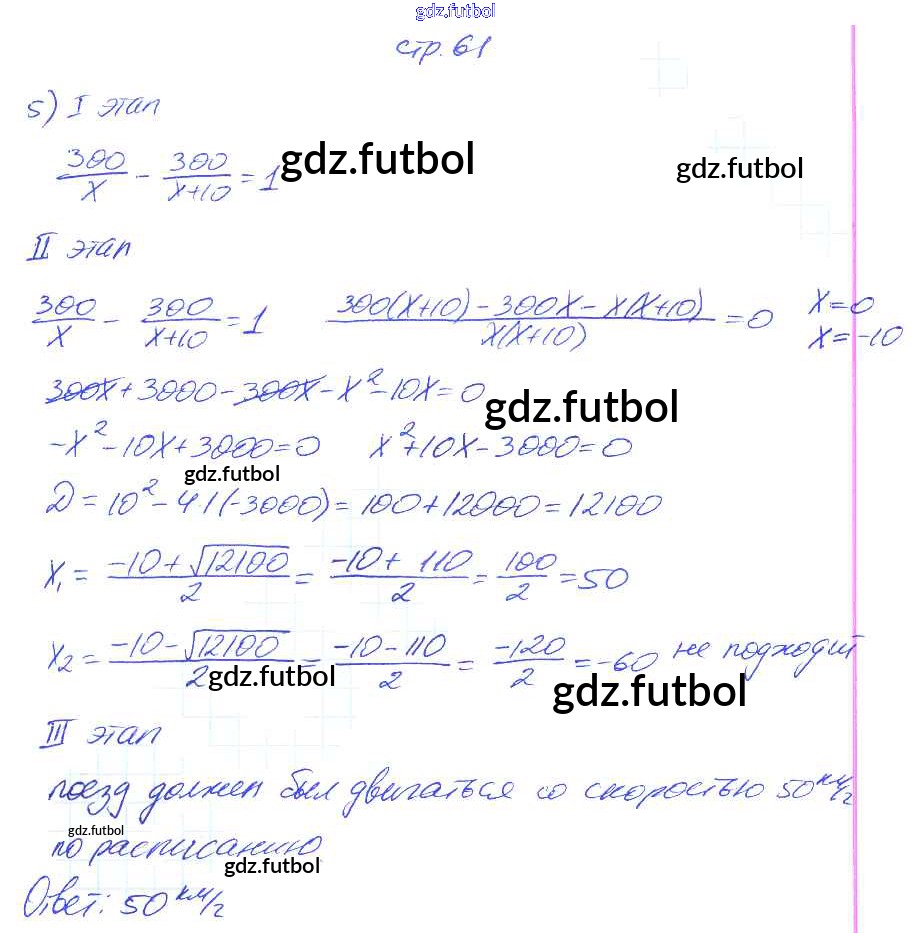 gdz.futbol
стр. 61
5) I этап
300/x - 300/(x+10) = 1 gdz.futbol gdz.futbol
II этап
300/x - 300/(x+10) = 1 (300(x+10) - 300x - x(x+10))/(x(x+10)) = 0 x=0
x=-10
300x + 3000 - 300x - x² - 10x = 0 gdz.futbol
-x² - 10x + 3000 = 0 x² + 10x - 3000 = 0
gdz.futbol
Д = 10² - 4·1(-3000) = 100 + 12000 = 12100
x₁ = (-10 + √12100)/2 = (-10 + 110)/2 = 100/2 = 50
x₂ = (-10 - √12100)/2 = (-10 - 110)/2 = -120/2 = -60 не подходит
gdz.futbol gdz.futbol
III этап
поезд должен был двигаться со скоростью 50 км/ч
gdz.futbol
по расписанию
gdz.futbol
Ответ: 50 км/ч